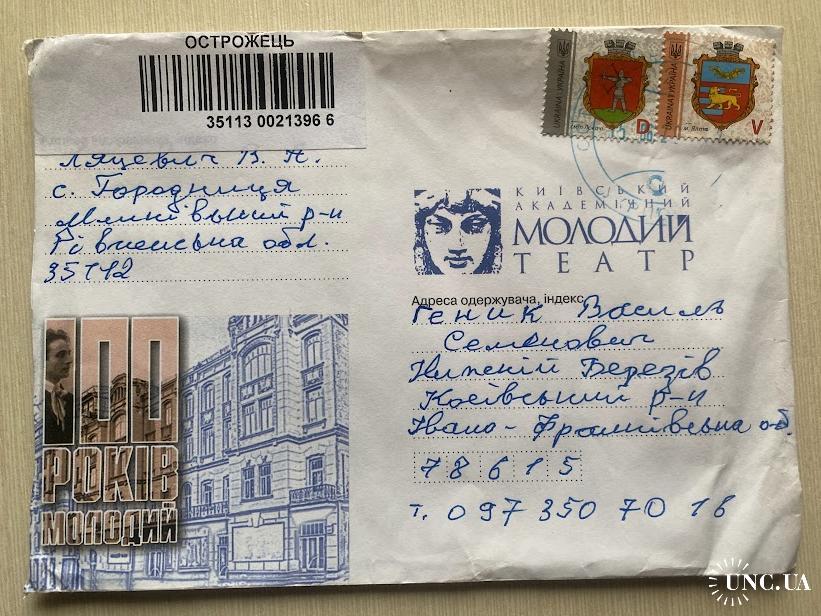 ОСТРОЖЕЦЬ
35113 0021396 6
Ляцевич В. А.
с. Городниця
Млинівський р-н
Рівненська обл.
35712
UKRAINA УКРАЇНА
D
UKRAINA УКРАЇНА
м. Ялта
V
КИЇВСЬКИЙ
АКАДЕМІЧНИЙ
МОЛОДИЙ
ТЕАТР
Адреса одержувача, індекс
Геник Василь
Семенович
Нижній Березів
Косівський р-н
Івано-Франківська об.
78615
т. 097 350 70 16
100
РОКІВ
МОЛОДИЙ
UNC.UA